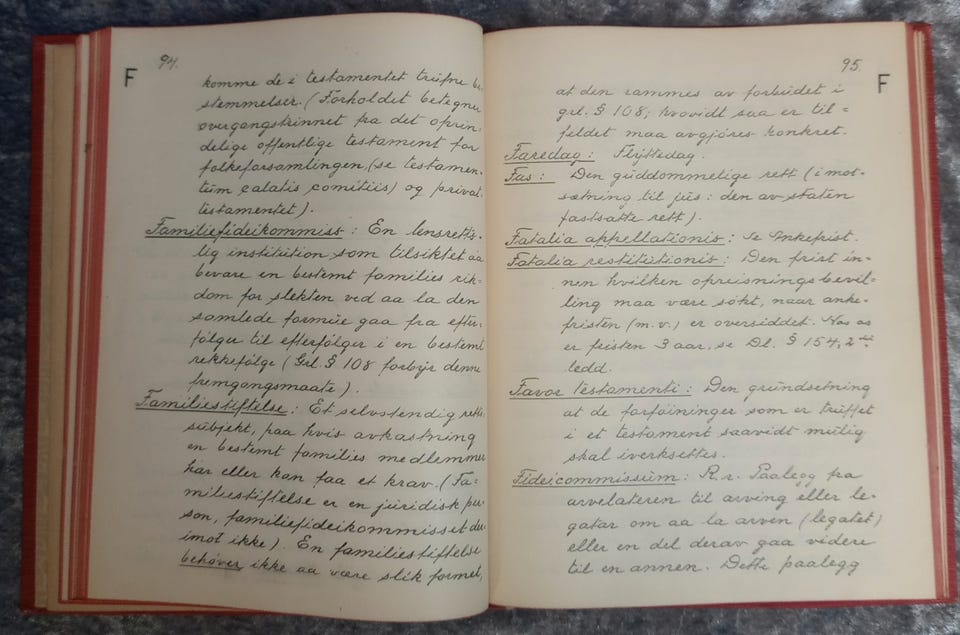 94.
F
komme de i testamentet trufne be-
stemmelser. (Forholdet betegner
overgangstrinnet fra det oprin-
delige offentlige testament for
folkeforsamlingen, (se testamen-
tum calatis comitiis) og privat-
testamentet).
Familiefideikommiss: En lensretts-
lig institution som tilsiktet aa
bevare en bestemt families rik-
dom for slekten ved aa la den
samlede formue gaa fra efter-
følger til efterfølger i en bestemt
rekkefølge (Grl. § 108 forbyr denne
fremgangsmaate).
Familiestiftelse: Et selvstendig retts-
subjekt, paa hvis avkastning
en bestemt families medlemmer
har eller kan faa et krav. (Fa-
miliestiftelse er en juridisk per-
son, familiefideikommisset der-
imot ikke). En familiestiftelse
behøver ikke aa være slik formet,
95.
F
at den rammes av forbudet i
grl. § 108; hvorvidt saa er til-
feldet maa avgjøres konkret.
Faredag: Flyttedag.
Fas: Den guddommelige rett (i mot-
setning til jus: den av staten
fastsatte rett).
Fatalia appellationis: Se Ankefrist.
Fatalia restitutionis: Den frist in-
nen hvilken opreisningsbevil-
ling maa være søkt, naar anke-
fristen (m.v.) er oversiddet. Hos os
er fristen 3 aar, se Dl. § 154, 2
ledd.
Favor testamenti: Den grundsetning
at de forføininger som er truffet
i et testament saavidt mulig
skal iverksettes.
Fideicommissum: R.r. Paalegg fra
arvelateren til arving eller le-
gatar om aa la arven (legatet)
eller en del derav gaa videre
til en annen. Dette paalegg